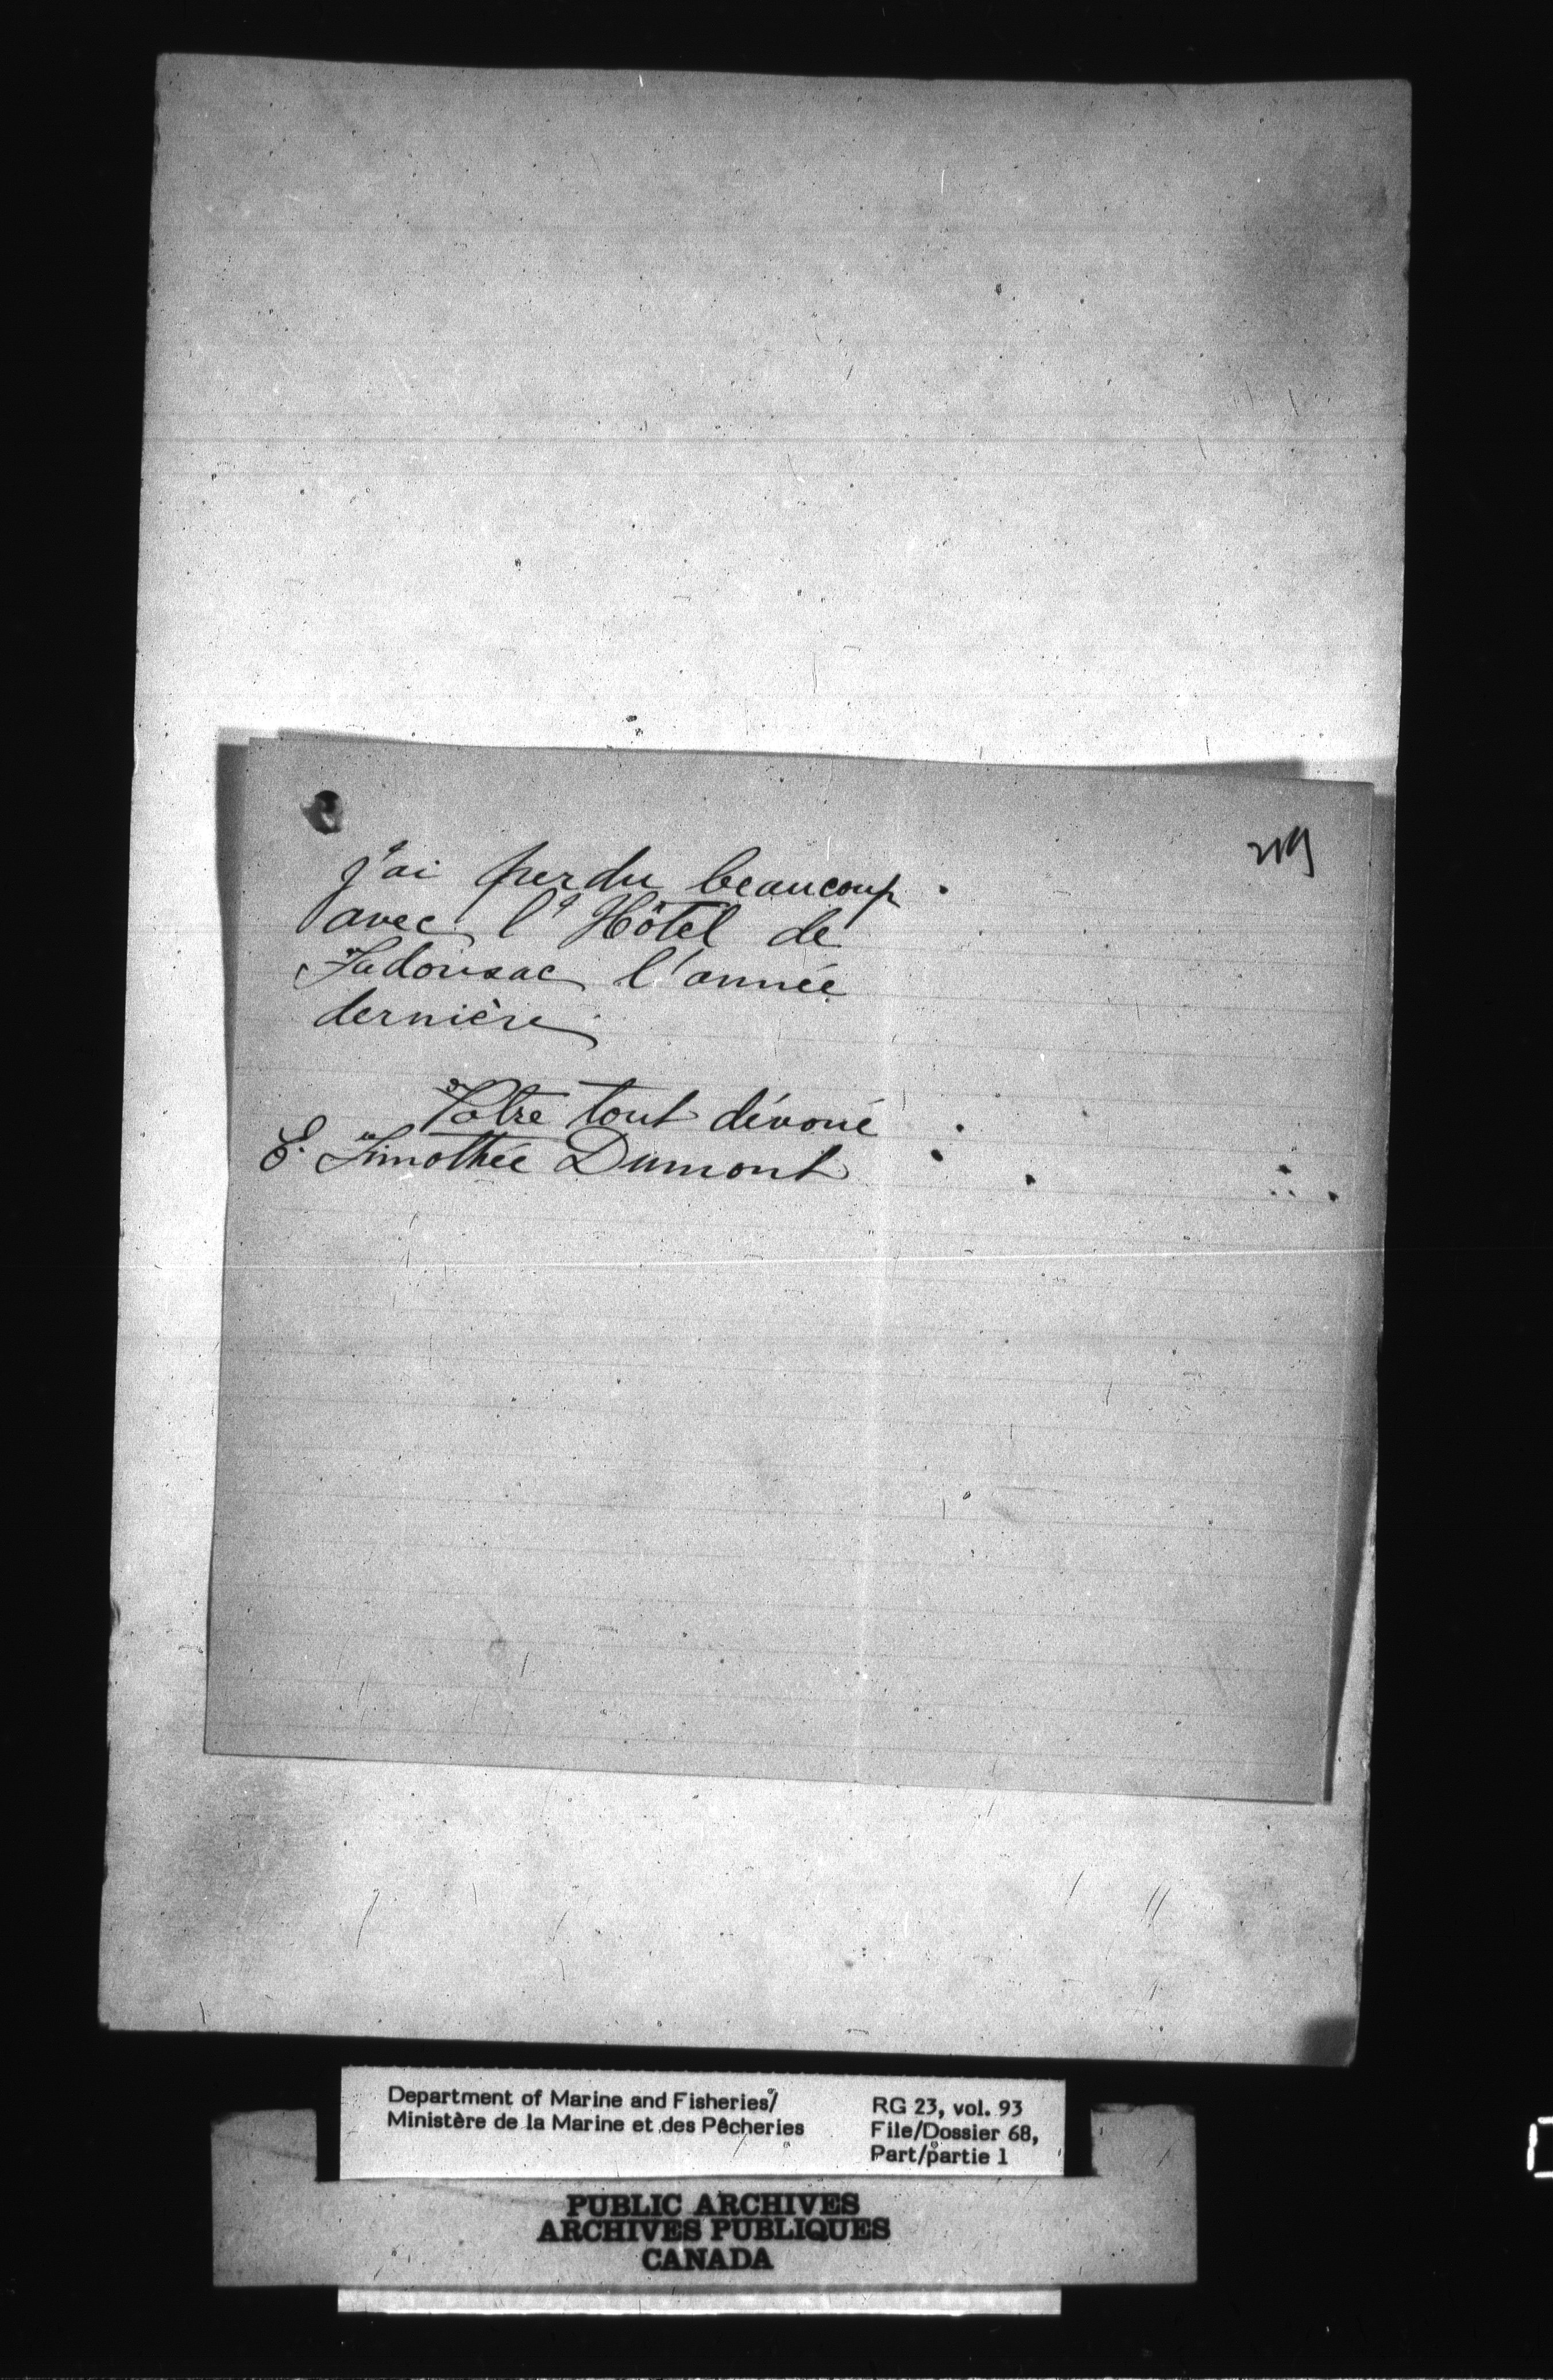 j'ai perdu beaucoup
avec l'Hôtel de
Tadousac l'année
dernière
Votre tout dévoué
E. Timothée Dumont
Department of Marine and Fisheries/
Ministère de la Marine et des Pêcheries
RG 23, vol. 93
File/Dossier 68,
Part/partie 1
PUBLIC ARCHIVES
ARCHIVES PUBLIQUES
CANADA